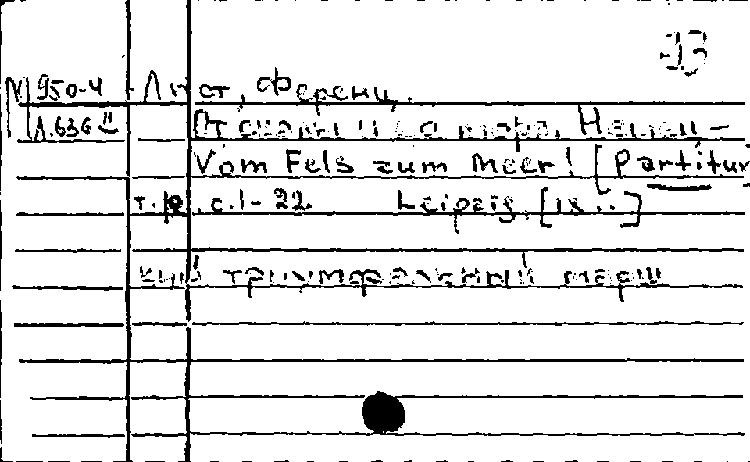 93
М 950-4 Лист, Ференц.
Л.636 II От скалы и до моря. Немец-
Vom Fels zum Meer! [Partitur
т. р., с. 1-22. Leipzig, [18..]
кий триумфальный марш